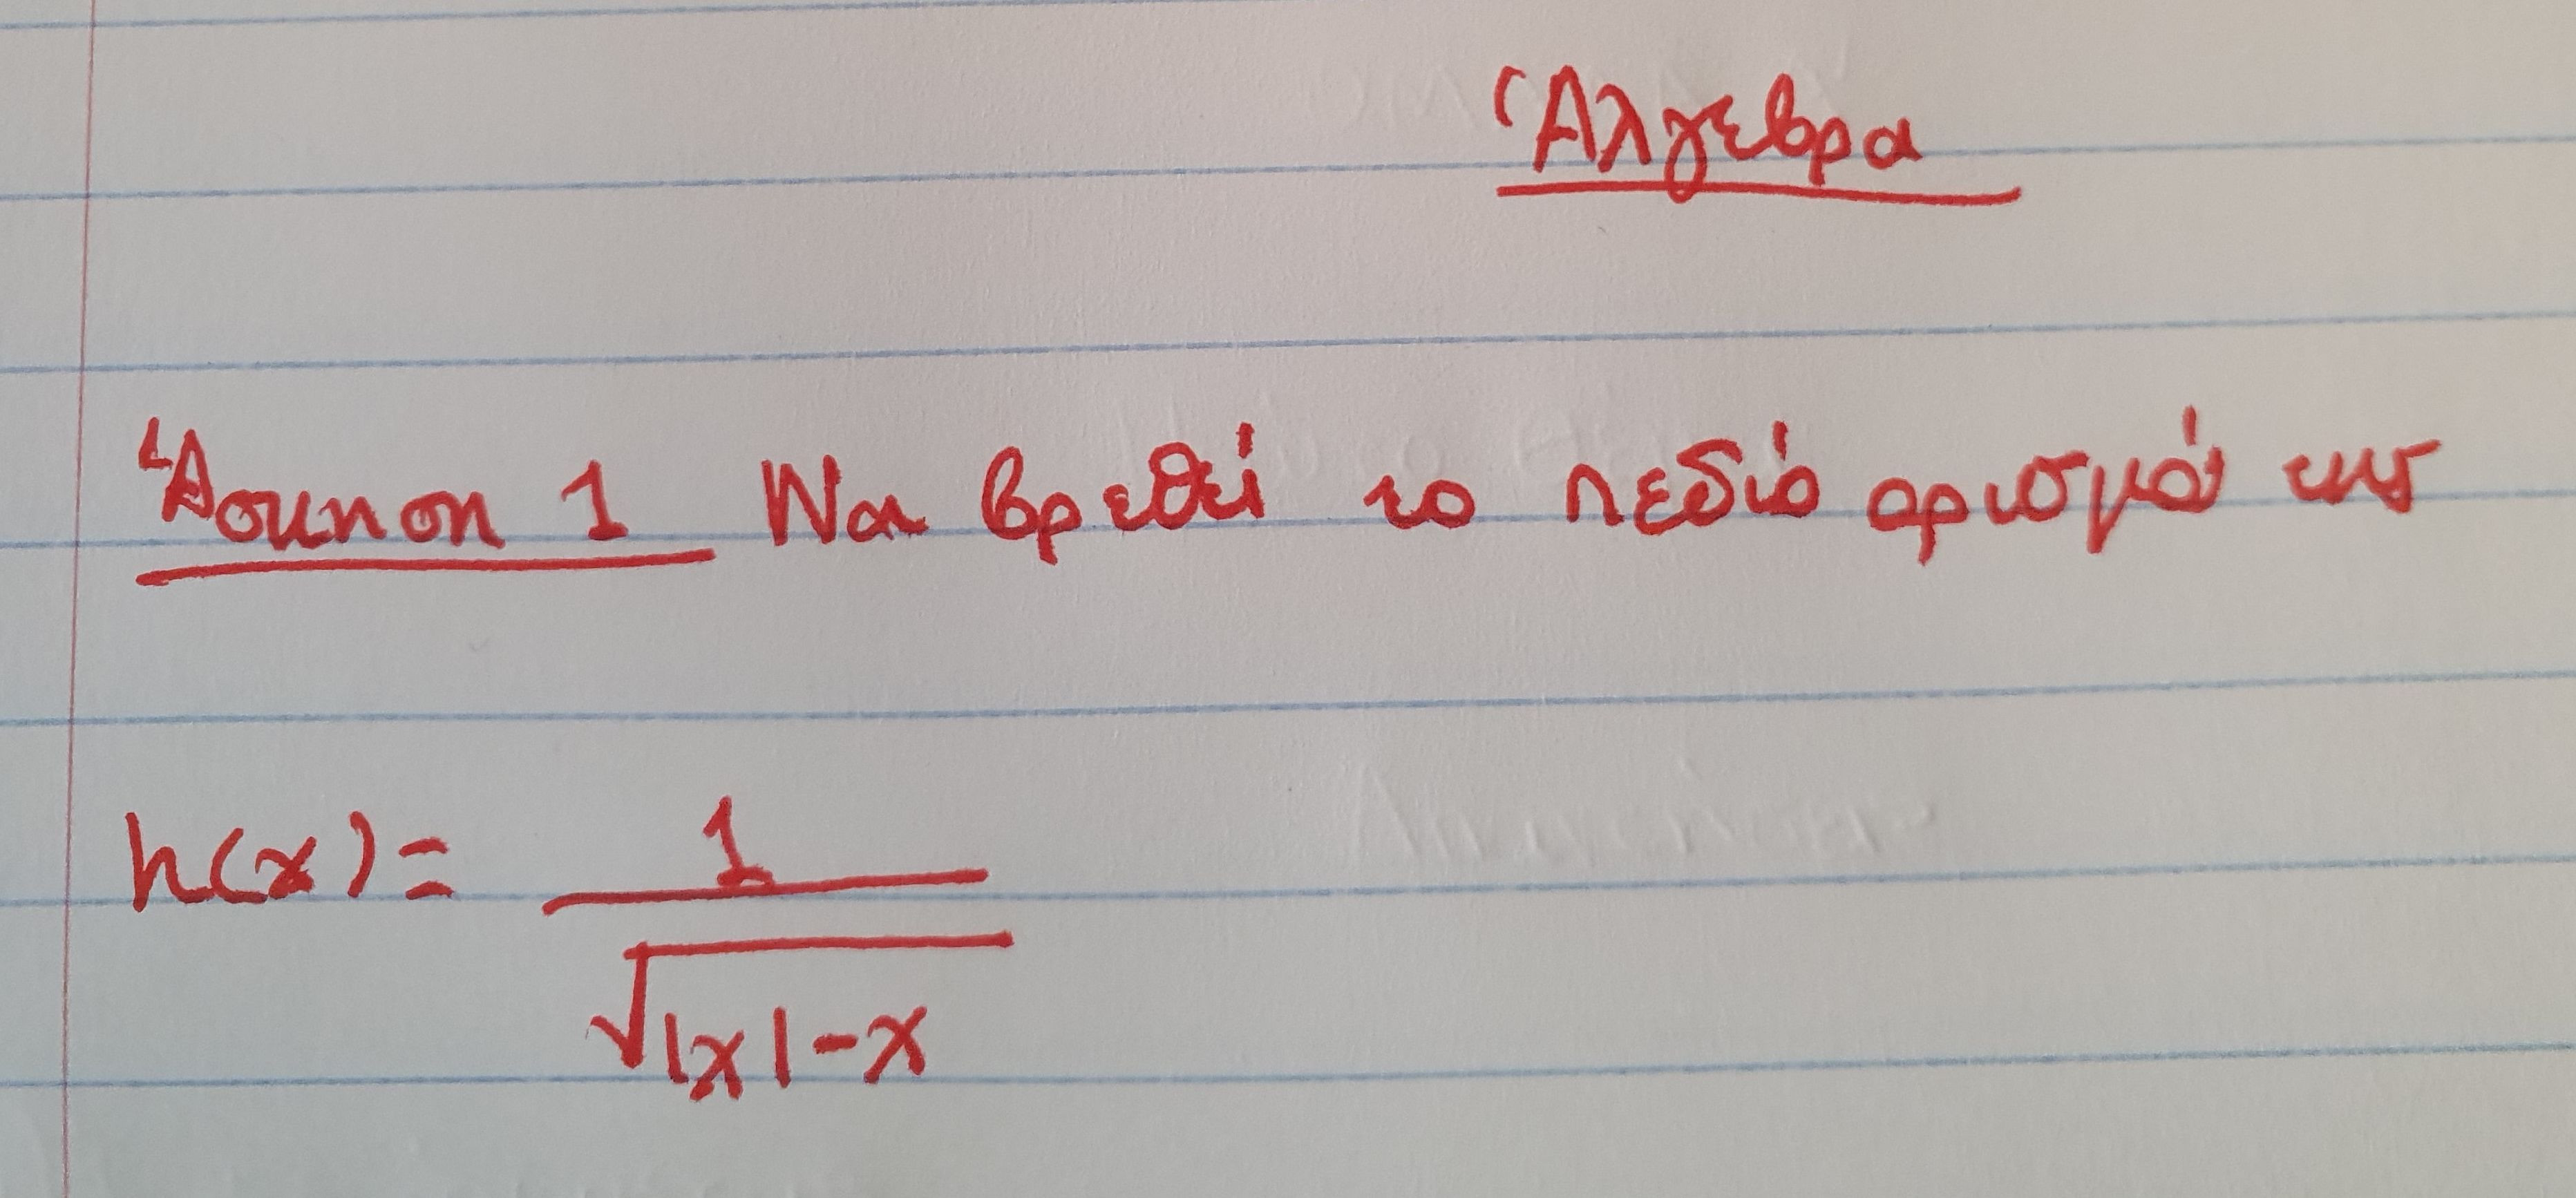 Άλγεβρα
Άσκηση 1 Να βρεθεί το πεδίο ορισμού της
h(x) = 1 / √|x|-x